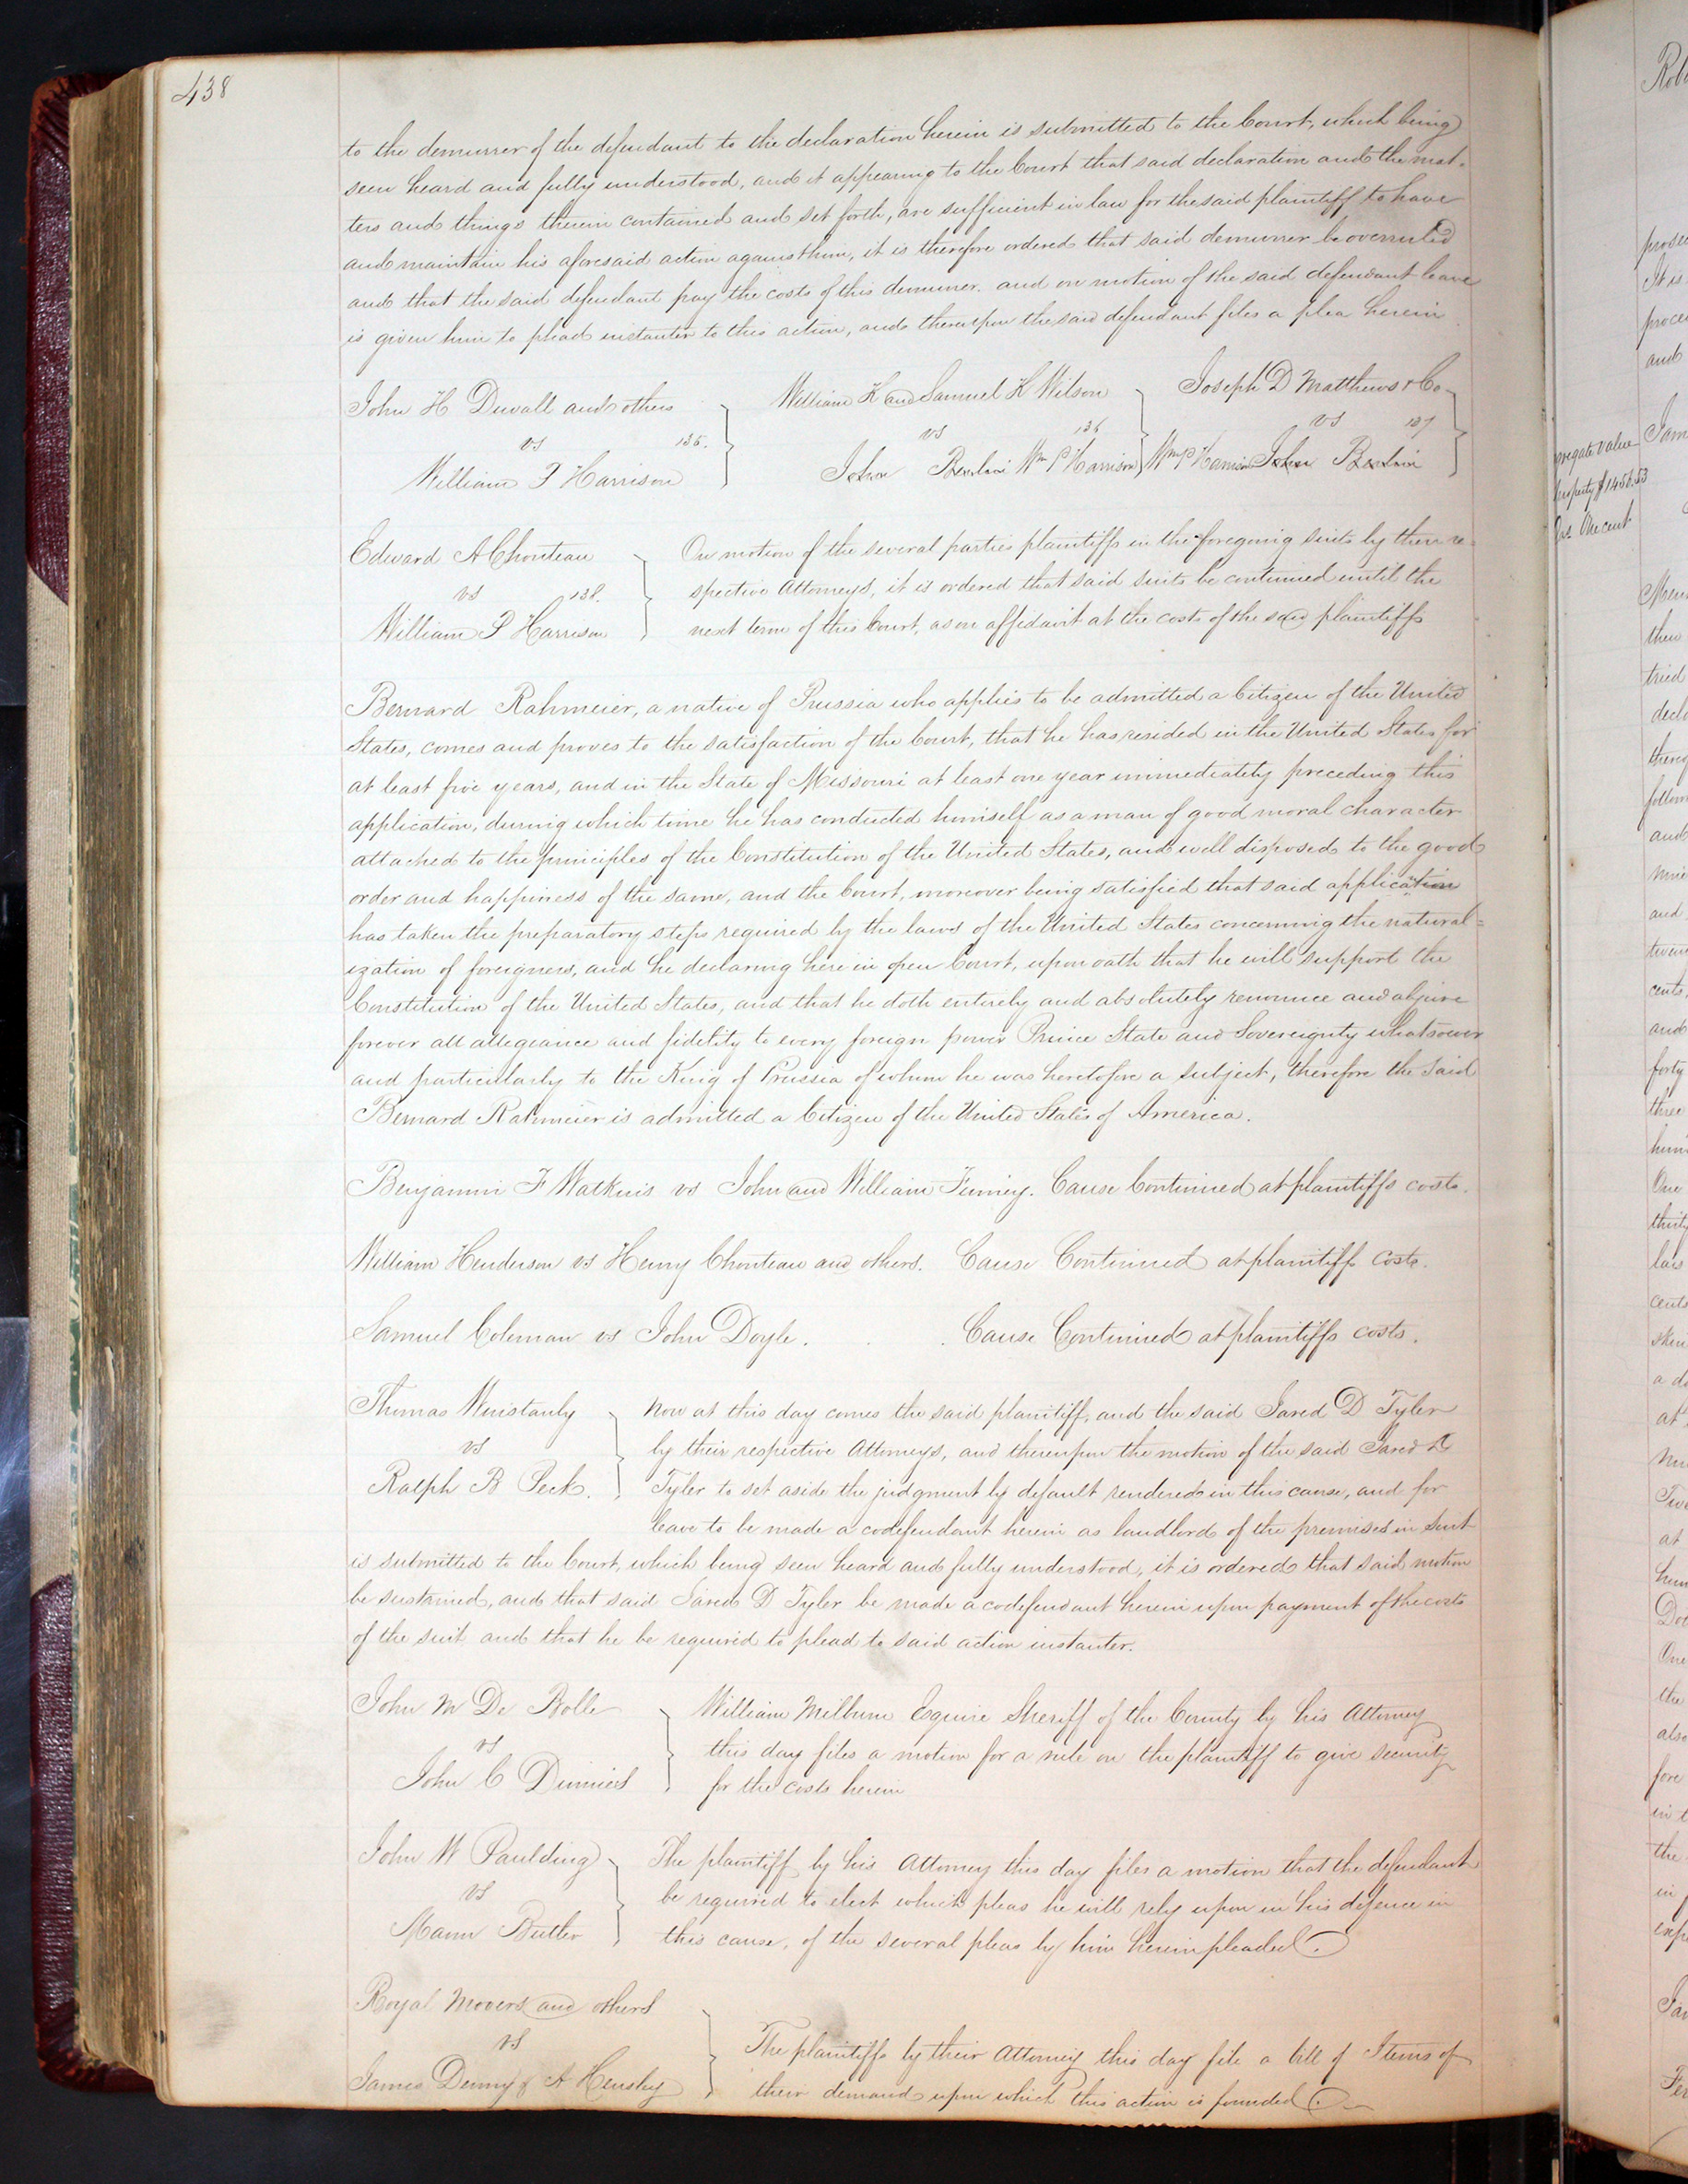 438
to the demurrer of the defendant to the declaration herein is submitted to the Court, which being
seen heard and fully understood, and it appearing to the Court that said declaration and the mat-
ters and things therein contained and set forth, are sufficient in law for the said plaintiff to have
and maintain his aforesaid action against him, it is therefore ordered that said demurrer be overruled
and that the said defendant pay the costs of this demurrer. and on motion of the said defendant leave
is given him to plead instanter to this action, and thereupon the said defendant files a plea herein
John H Duvall and others
vs 135.
William P Harrison
William K and Samuel K Wilson
vs 136
John Berlin Wm P Harrison
Joseph D Matthews & Co
vs 137
Wm P Harrison John Berlin
Edward A Chouteau
vs 138.
William P Harrison
On motion of the several parties plaintiffs in the foregoing suits by their re-
spective Attorneys, it is ordered that said suits be continued until the
next term of this Court, as on affidavit at the costs of the said plaintiffs
Bernard Rahmeier, a native of Prussia who applies to be admitted a Citizen of the United
States, comes and proves to the satisfaction of the Court, that he has resided in the United States for
at least five years, and in the State of Missouri at least one year immediately preceding this
application, during which time he has conducted himself as a man of good moral character
attached to the principles of the Constitution of the United States, and well disposed to the good
order and happiness of the same, and the Court, moreover being satisfied that said application
has taken the preparatory steps required by the laws of the United States concerning the natural=
ization of foreigners, and he declaring here in open Court, upon oath that he will support the
Constitution of the United States, and that he doth entirely and absolutely renounce and abjure
forever all allegiance and fidelity to every foreign power Prince State and Sovereignty whatsoever
and particularly to the King of Prussia of whom he was heretofore a subject, therefore the said
Bernard Rahmeier is admitted a Citizen of the United States of America.
Benjamin F Watkins vs John and William Finney. Cause Continued at plaintiffs costs.
William Henderson vs Henry Chouteau and others. Cause Continued at plaintiffs Costs.
Samuel Coleman vs John Doyle. Cause Continued at plaintiffs costs.
Thomas Winstanly
vs
Ralph B Peck.
Now at this day comes the said plaintiff, and the said Jared D Tyler
by their respective Attorneys, and thereupon the motion of the said Jared D
Tyler to set aside the judgment by default rendered in this cause, and for
leave to be made a codefendant herein as landlord of the premises in suit
is submitted to the Court, which being seen heard and fully understood, it is ordered that said motion
be sustained, and that said Jared D Tyler be made a codefendant herein upon payment of the costs
of the suit and that he be required to plead to said action instanter.
John M De Bolle
vs
John C Dinnies
William Milburn Esquire Sheriff of the County by his Attorney
this day files a motion for a rule on the plaintiff to give security
for the costs herein
John W Paulding
vs
Mann Butler
The plaintiff by his Attorney this day files a motion that the defendant
be required to elect which pleas he will rely upon in his defence in
this cause, of the several pleas by him herein pleaded.
Royal Movers and others
vs
James Denny & A Hensley
The plaintiffs by their Attorney this day file a bill of Items of
their demand upon which this action is founded.